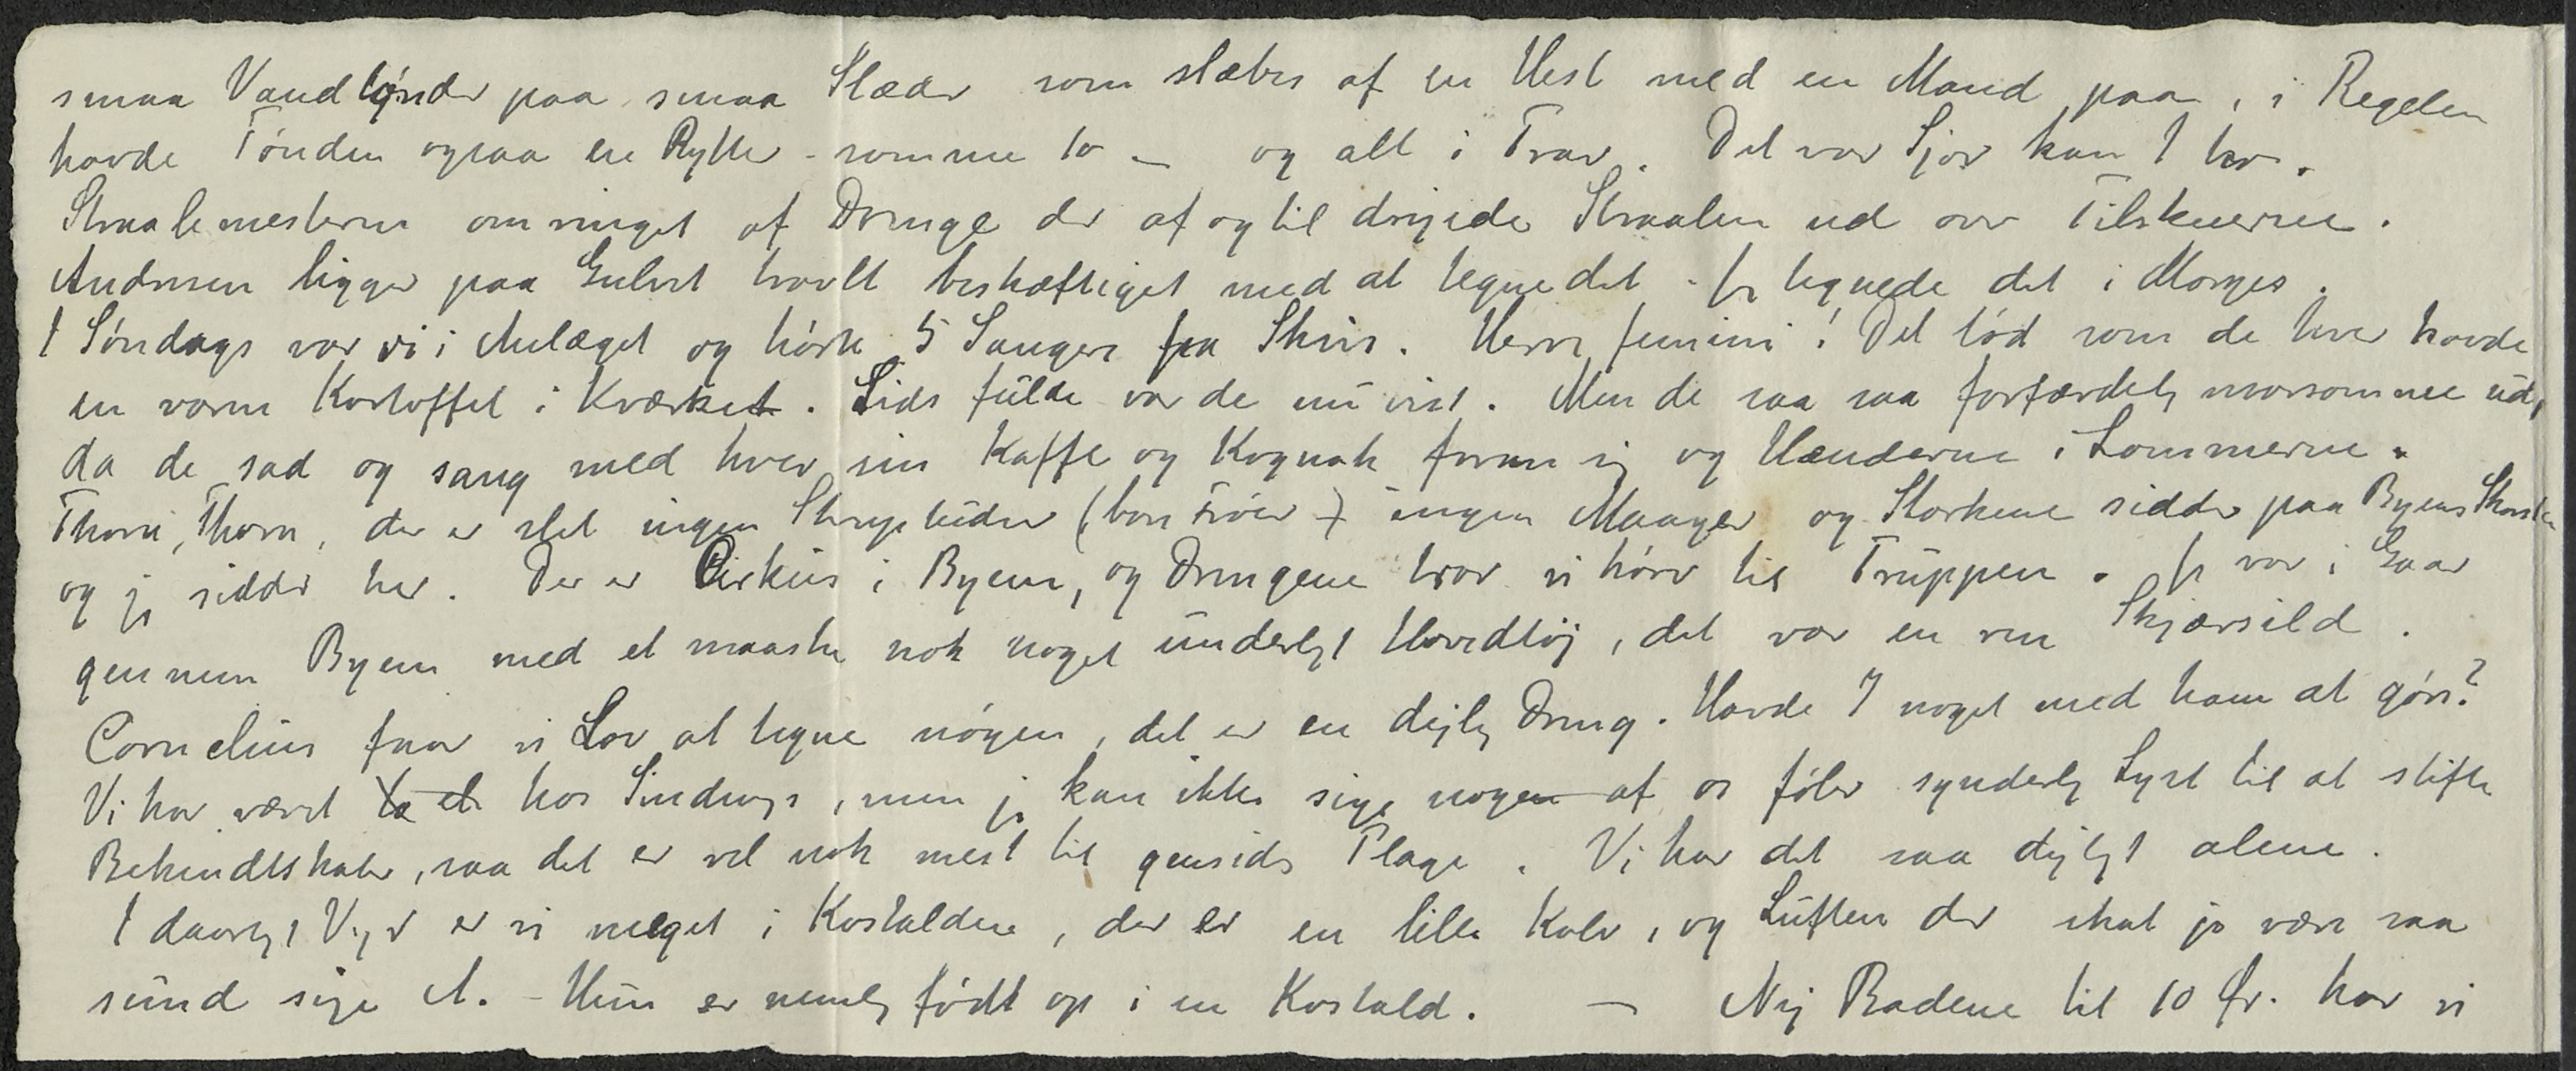 smaa Vandtønder paa smaa Slæder som slæbes af en Hest med en Mand paa, i Regelen
havde Tønden ogsaa en Rytter - somme to - og alt i Trav. Det var Sjov kan I tro.
Straalemesteren omringet af Drenge der af og til drejede Straalen ud over Tilskuerne.
Andresen ligger paa Gulvet travlt beskæftiget med at tegne det - jeg tegnede det i Morges.
I Søndags var vi i Anlæget og hørte 5 Sangere fra Skive. Herre jemini! Det lød som de hver havde
en varm Kartoffel i Kværket. Lidt fulde var de nu vist. Men de saa saa forfærdelig morsomme ud,
da de sad og sang med hver sin Kaffe og Kognak foran sig og Hænderne i Lommerne.
Thora, Thora, der er slet ingen Skruptudser (bare Frøer) ingen Maager og Storkene sidder paa Byens Skorsten
og jeg sidder her. Der er Cirkus i Byen, og Drengene tror vi hører til Truppen. Jeg var i Gaar
gennem Byen med et maaske nok noget underligt Hovedtøj, det var en ren Skjærsild.
Cornelius faar vi Lov at tegne nøgen, det er en dejlig Dreng. Havde I noget med ham at gøre?
Vi har været hos Sindings, men jeg kan ikke sige nogen af os føler synderlig Lyst til at stifte
Bekendtskaber, saa det er vel nok mest til gensidig Plage. Vi har det saa dejligt alene.
I daarligt Vejr er vi meget i Kostalden, der er en lille Kalv, og Luften der skal jo være saa
sund siger A. - Hun er nemlig født op i en Kostald. - Nij Badene til 10 Ør. har vi